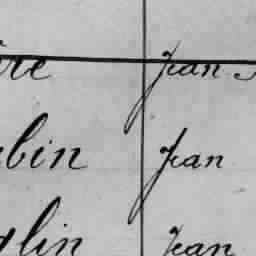 ire Jean
bin Jean
glin Jean